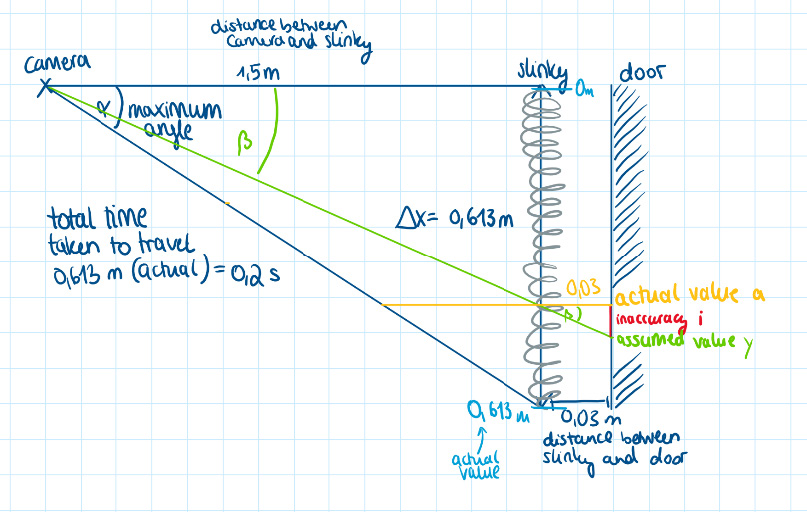 distance between
Camera and slinky
Camera
1,5m
slinky
door
0m
α
maximum
angle
β
total time
taken to travel
0,613 m (actual) = 0,2 s
Δx = 0,613 m
0,03
actual value a
inaccuracy i
β
assumed value y
0,613 m
actual
value
0,03 m
distance between
slinky and door